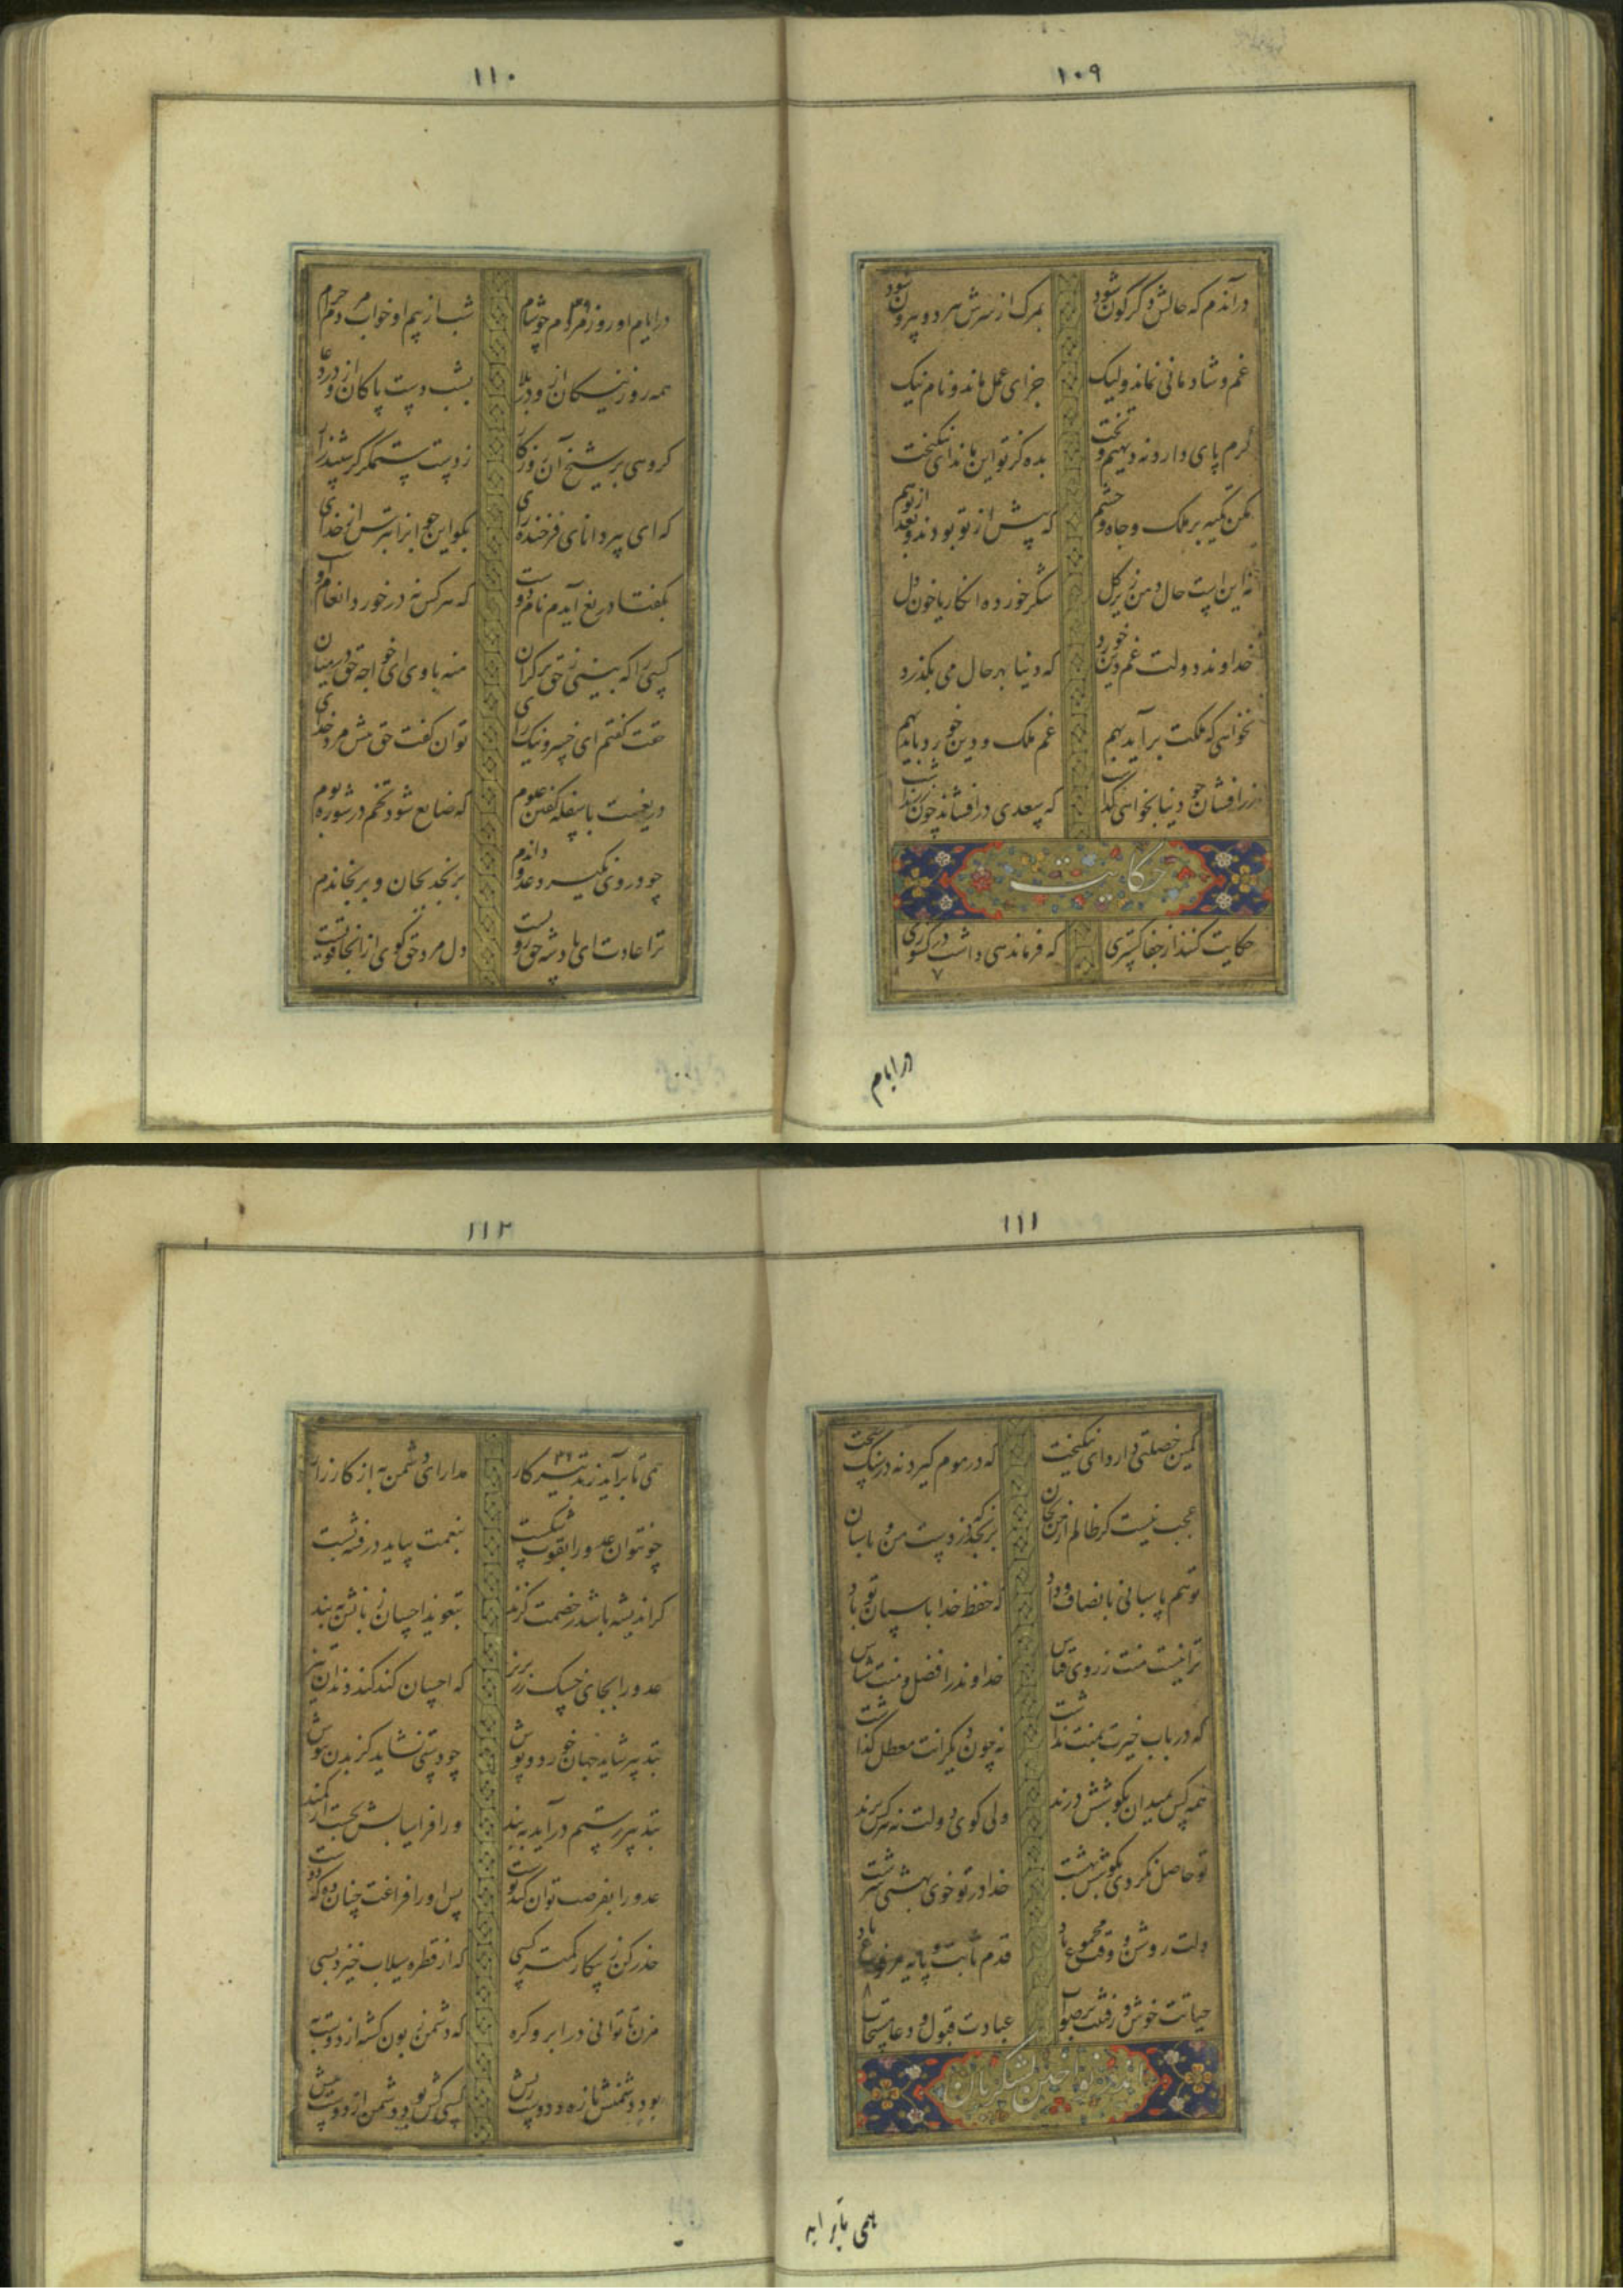 ١٠٩
در آندم که حالش دگرگون شود بمرک از سرش هر دو بیرون شود
غم و شادمانی نماند ولیک جزای عمل ماند و نام نیک
کرم پای دارد نه دیهیم و تخت بده کز تو این ماند ای نیکبخت
مکن تکیه بر ملک و جاه و حشم که پیش از تو بودند و بعد از تو هم
خداوند دولت غم دین خورد که دنیا بهر حال می بگذرد
نخواهی که ملکت برآید بهم غم ملک و دین خورد باید بهم
زرافشان چو دنیا بخواهی گذاشت که سعدی درافشاند چون زر نداشت
حکایت
حکایت کنند از جفا گستری که فرماندهی داشت در کشوری
٧
در ایام
١١٠
در ایام او روز مردم چو شام شب از بیم او خواب مردم حرام
همه روز نیکان ازو در بلا بشب دست پاکان ازو در دعا
گروهی بر شیخ آن روزگار ز دست ستمگر گرستند زار
که ای پیر دانای فرخنده رای بگو این جوانرا بترس از خدای
بگفتا دریغ آیدم نام دوست که هر کس نه در خورد انعام اوست
کسی را که بینی ز حق بر کران منه با وی ای خواجه حق در میان
حقت گفتم ای خسرو نیک رای توان گفت حق پیش مرد خدای
دریغست با سفله گفتن علوم که ضایع شود تخم در شوره بوم
چو در وی نگیرد عدو داندم برنجد بجان و برنجاندم
ترا عادت ای پادشه حق رویست دل مرد حق گوی ازانجا قویست
١١١
نگین خصلتی دارد ای نیکبخت که در موم گیرد نه در سنگ سخت
عجب نیست گر ظالم از من بجان برنجد که دزدست و من پاسبان
تو هم پاسبانی بانصاف و داد که حفظ خدا پاسبان تو باد
ترا نیست منت ز روی قیاس خداوند را فضل و منت شناس
که در باب خیرت بخدمت بداشت نه چون دیگرانت معطل گذاشت
همه کس بمیدان کوشش درند ولی گوی دولت نه هر کس برند
تو حاصل نکردی بکوشش بهشت خدا در تو خوی بهشتی سرشت
دلت روشن و وقت مجموع باد قدم ثابت و پایه مرفوع باد
٨
حیاتت خوش و رفتنت بر صواب عبادت قبول و دعا مستجاب
همی تا برآید
١١٢
همی تا برآید بتدبیر کار مدارای دشمن به از کارزار
چو نتوان عدو را بقوت شکست بنعمت بباید در فتنه بست
گر اندیشه باشد ز خصمت گزند بتعویذ احسان زبانش ببند
عدو را بجای خسک زر بریز که احسان کند کند دندان تیز
بتدبیر شاید جهان خورد و پوش چو دستی نشاید گزیدن ببوس
بتدبیر رستم درآید ببند ورا فراسیابش نجست از کمند
عدو را بفرصت توان کند پوست پس او را فراغت چنان ده که دوست
حذر کن ز پیکار کمتر کسی که از قطره سیلاب خیزد بسی
مزن تا توانی در ابرو گره که دشمن زبون گشته از دوست به
بود دشمنش تازه و دوست ریش کسی کش بود دشمن از دوست بیش